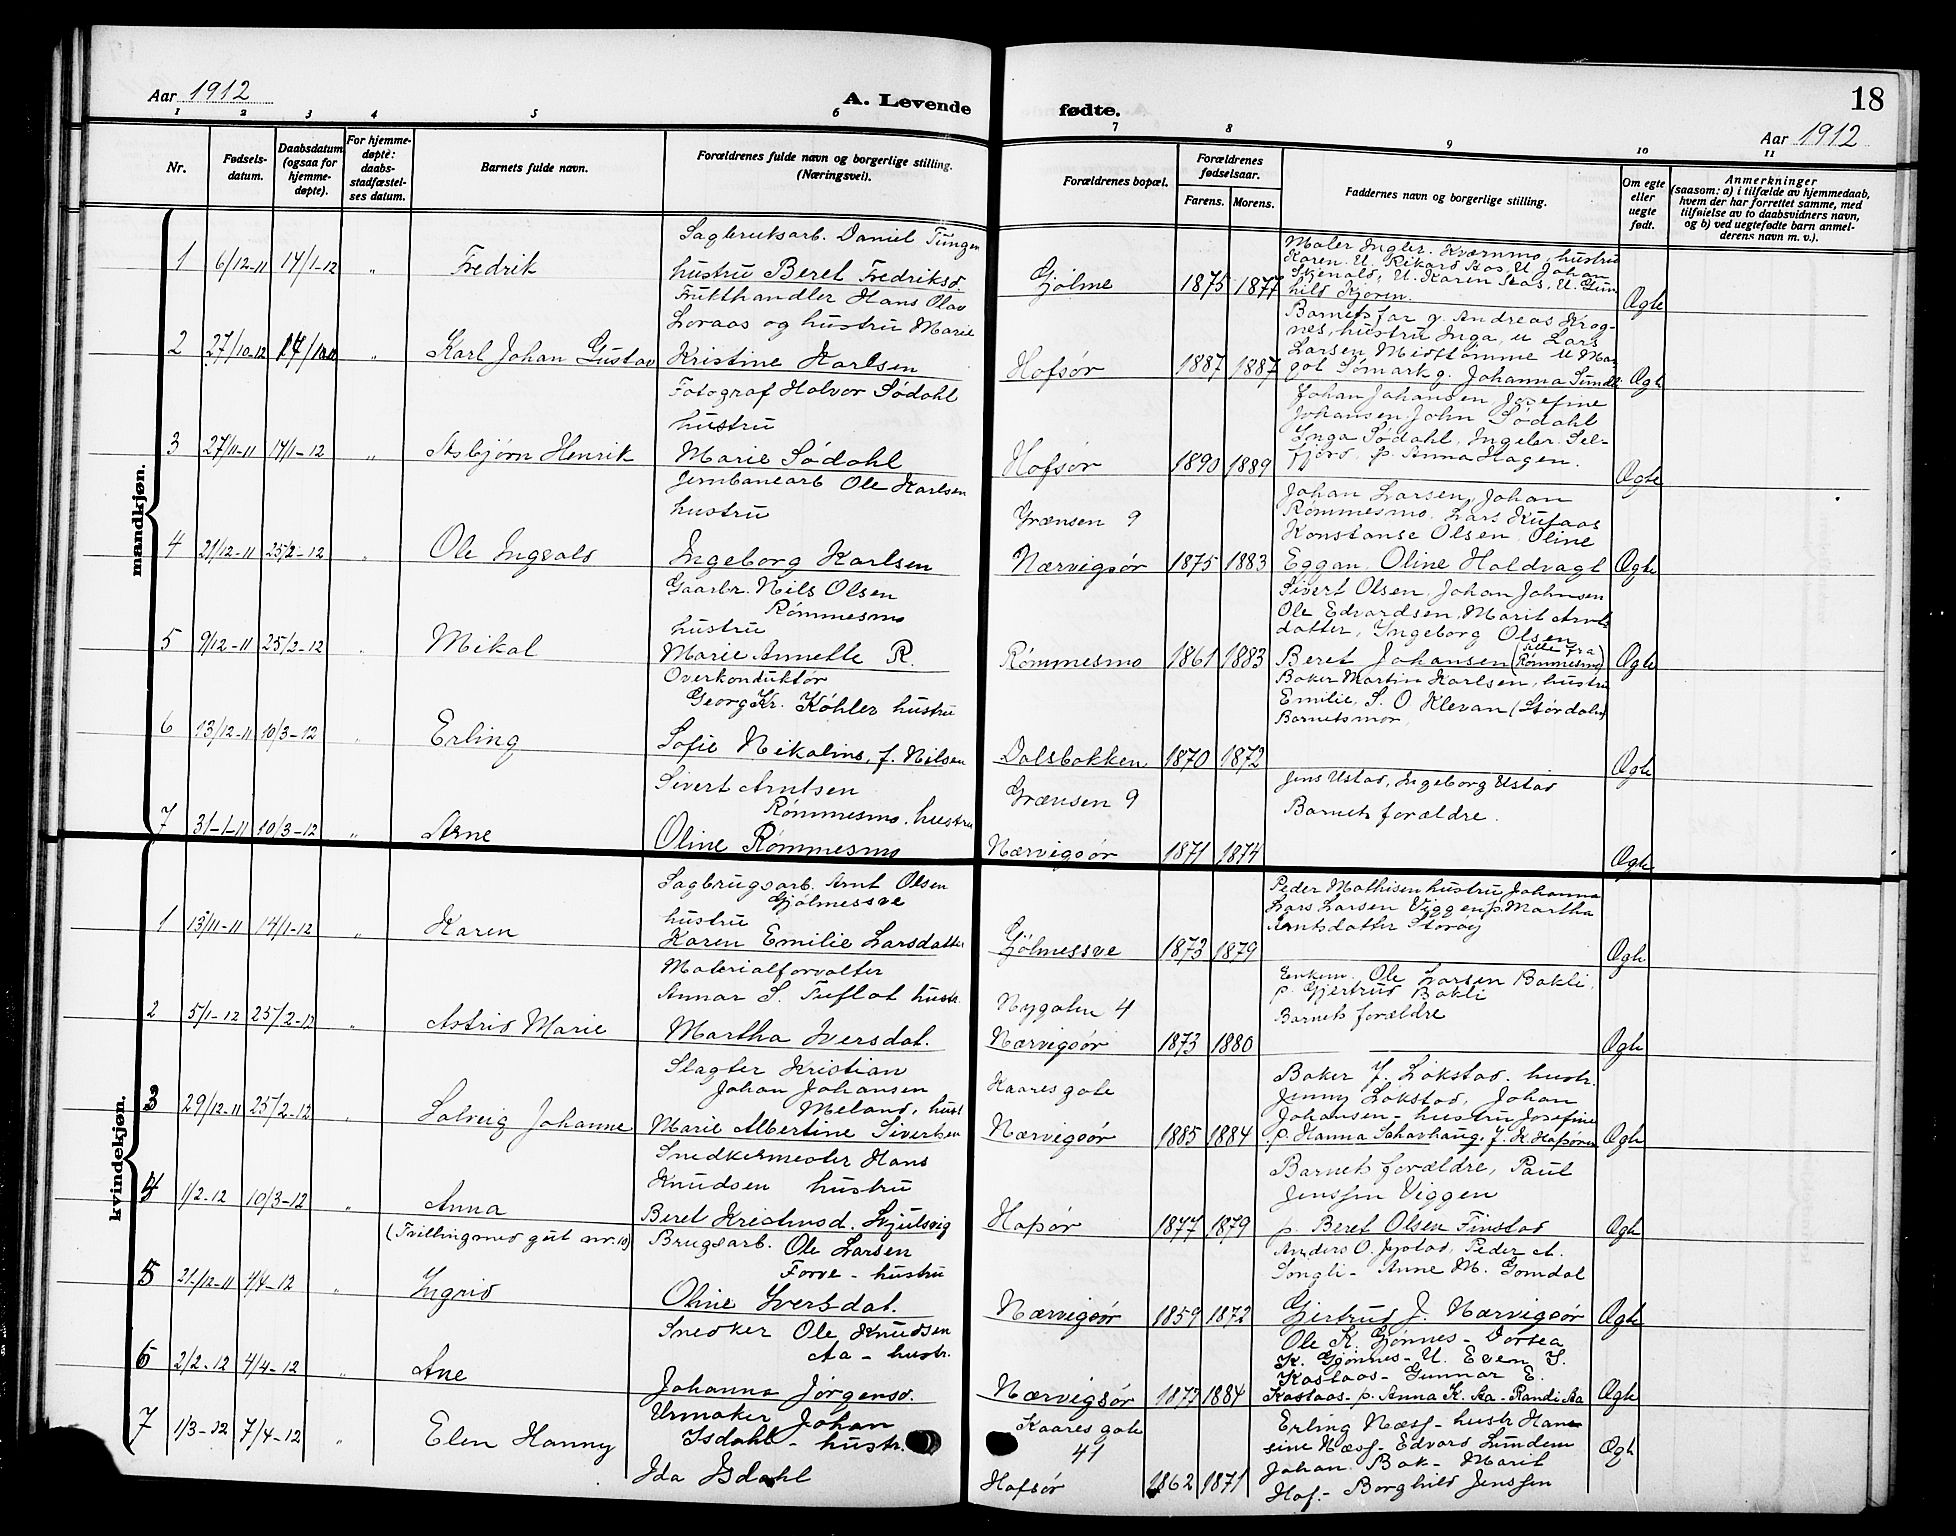 Aar 1912
A. Levende fødte.
18
Aar 1912
1 2 3 4 5 6 7 8 9 10 11
Nr.
Fødsels-
datum.
Daabsdatum
(ogsaa for
hjemme-
døpte).
For hjemme-
døpte:
daabs-
stadfæstel-
ses datum.
Barnets fulde navn.
Forældrenes fulde navn og borgerlige stilling.
(Næringsvei).
Forældrenes bopæl.
Forældrenes
fødselsaar.
Farens. Morens.
Faddernes navn og borgerlige stilling.
Om egte
eller
uegte
født.
Anmerkninger
(saasom: a) i tilfælde av hjemmedaab,
hvem der har forrettet samme, med
tilføielse av to daabsvidners navn,
og b) ved uegtefødte barn anmel-
derens navn m. v.).
mandkjøn.
1 6/12-11 14/1-12 " Fredrik
Sagbruksarb. Daniel Tungen
hustru Beret Fredriksd.
Gjölme 1875 1877
Maler Ingbr. Kværnmo, hustru
Karen. U. Rikard Aas, U. Johan
Skjenald, U. Karen Aas, U. Gun
hild Kjøren.
Ægte
2 27/10-12 " Karl Johan Gustav
Frukthandler Hans Olav
Loraas og hustru Marie
Kristine Karlsen
Hofsør 1887 1887
Barnets far g. Andreas Krog-
nes, hustru Inga, u Lars
Larsen Midttømme U Mar
got Sømark g. Johanna Sunde
Ægte
3 27/11-11 14/1-12 " Asbjørn Henrik
Fotograf Halvor Sødahl
hustru
Marie Sødahl
Hofsør 1890 1889
Johan Johansen, Josefine
Johansen. John Sødahl
Inga Sødahl, Ingebr. Sel-
fjord, p. Anna Hagen.
Ægte
4 21/12-11 25/2-12 " Ole Ingvald
Jernbanearb Ole Karlsen
hustru
Ingeborg Karlsen
Grænsen 9
Nærvigsør 1875 1883
Johan Larsen, Johan
Rømmesmo, Lars Kufaas
Konstanse Olsen, Oline
Eggan, Oline Holdvagt
Ægte
5 9/12-11 25/2-12 " Mikal
Gaarbr. Nils Olsen
Rømmesmo
hustru
Marie Annette R.
Rømmesmo 1861 1883
Sivert Olsen, Johan Johnsen
Ole Edvardsen, Marit Arnts
datter, Ingeborg Olsen
Beret Johansen (alle fra
Rømmesmo)
Ægte
6 13/12-11 10/3-12 " Erling
Overkonduktør
Georg Kr. Köhler hustru
Sofie Nikoline, f. Nilsen
Dalsbakken 1870 1872
Baker Martin Karlsen, hustru
Emilie, S. O Klevan (Stördalen)
Barnets mor,
Ægte
7 31-1-11 10/3-12 " Arne
Sivert Arntsen
Rømmesmo. hustru
Oline Rømmesmo
Grænsen 9
Nærvigsør 1871 1874
Jens Ustad, Ingeborg Ustad
Barnets forældre.
Ægte
kvindekjøn.
1 13/11-11 14/1-12 " Karen
Sagbrugsarb. Arnt Olsen
Gjølmessve
hustru
Karen Emilie Larsdatter
Gjølmessve 1873 1879
Peder Mathisen hustru Johanna
Lars Larsen Viggen, p. Martha
Arntsdatter Storøy
Ægte
2 5/1-12 25/2-12 " Astrid Marie
Materialforvalter
Annar S. Tuflat hustr.
Martha Iversdat.
Nygaten 4
Nærvigsør 1873 1880
Enkem. Ole Larsen Bakli,
p. Gjertrud Bakli
Barnets forældre
Ægte
3 29/12-11 25/2-12 " Solveig Johanne
Slagter Kristian
Johan Johansen
Meland, hust
Marie Albertine Sivertsen
Kaares gate
Nærvigsør 1885 1884
Baker J. Lökstad. hustr.
Jenny Lökstad, Johan
Johansen - hustru Josefine
p. Hanna Schavhaug. J. K. Hafsören
Ægte
4 1/2-12 10/3-12 " Anna
Snedkermester Hans
Knudsen hustru
Beret Kristensd. Skjulsvig
Hafsør 1877 1879
Barnets forældre, Paul
Jenssen Viggen
p. Beret Olsen Finstad
Ægte
(Tvilling med gut nr. 10)
5 21/12-11 4/4-12 " Ingrid
Brugsarb. Ole Larsen
Forve - hustru
Oline Iversdat.
Nærvigsør 1859 1872
Anders O. Jystad, Peder A.
Songli - Anne M. Gomdal
Gjertrud J. Nærvigsør
Ægte
6 2/2-12 4/4-12 " Ane
Snedker Ole Knudsen
Aa - hustr.
Johanna Jørgensd.
Nærvigsør 1873 1884
Ole K. Gjønnes - Dortea
K. Gjønnes - U. Even S.
Kastaas - Gunnar E.
Kastaas - p. Anna K. Aa - Randi Aa
Ægte
7 1/3-12 7/4-12 " Elen Hanny
Urmaker Johan
Isdahl - hustr.
Ida Isdahl
Kaares gate
41
Hofsør 1862 1871
Erling Næss - hustr Han
sine Næss - Edvard Lundem
Johan Bak - Marit
Hof - Borghild Jenssen
Ægte